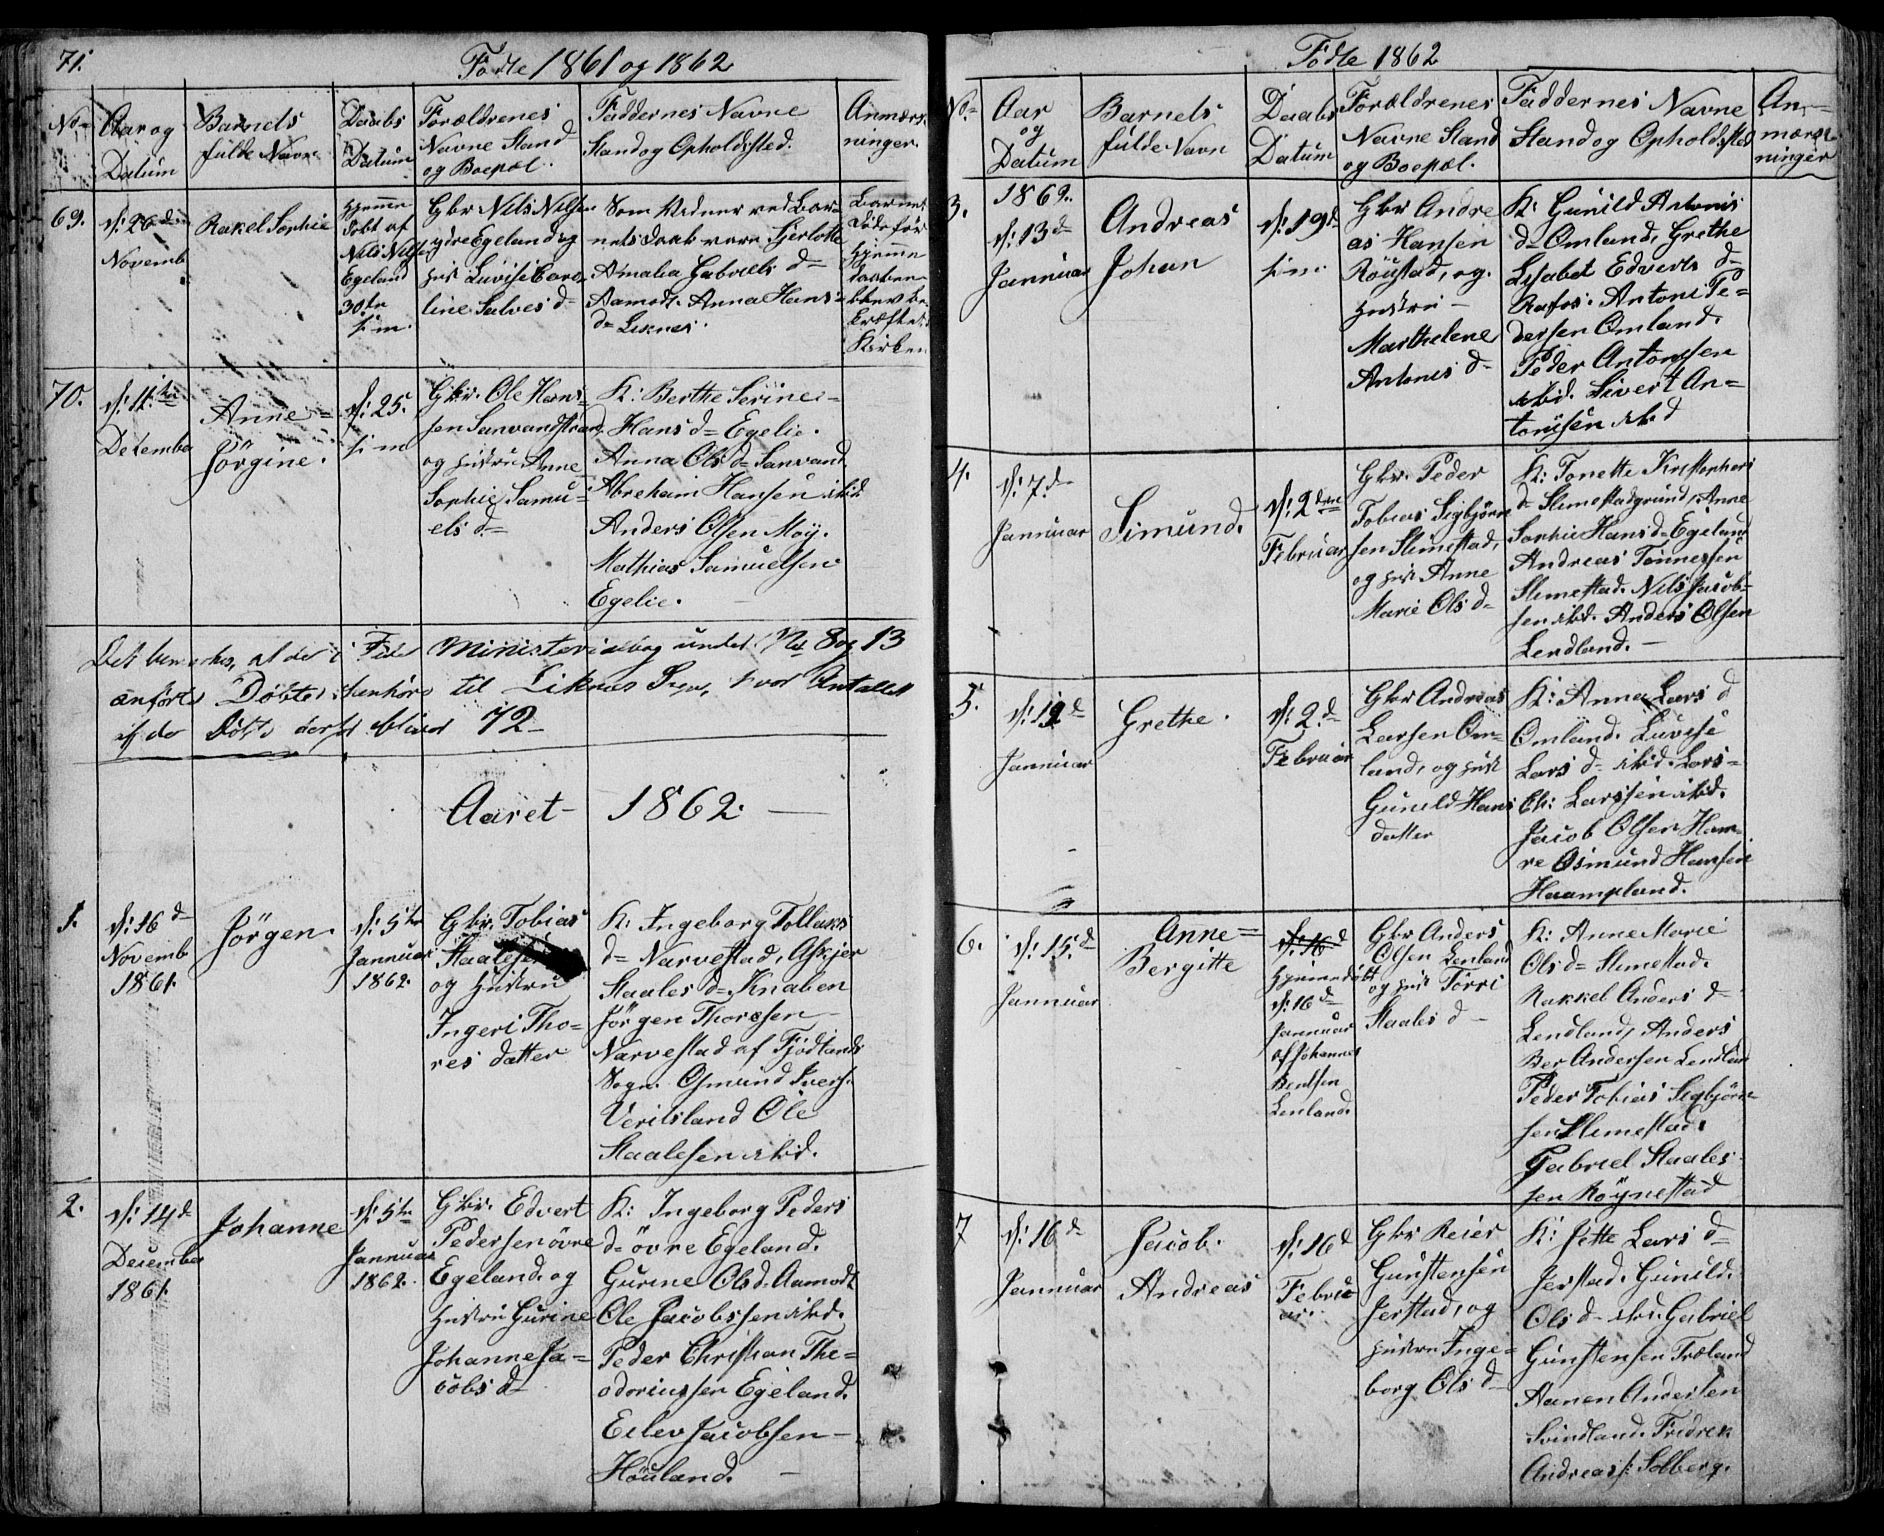 71.
Födte 1861 og 1862
No
Aar og
Datum
Barnets
fulde Navn
Daabs
Datum
Forældrenes
Navne Stand
og Boepæl.
Faddernes Navne
Stand og Opholdsted.
Anmærk-
ninger.
69.
d: 26
Novemb
Rakel Sophie
Hjemme
döbt af
Nils Nils
Egeland
30te
s: m.
Gbr Nils Nilsen
ydre Egeland og
Hust Luvise Caro-
line Salves d=
Som Vidner ved Bar-
nets daab vare Sjerlotte
Amalia Gabriels d=
Aamodt. Anna Hans
d= Liknes.
Barnet
döde för
Hjemme
daaben
blev be-
kræftet i
Kirken
70.
d: 11te
Decembe
Anne=
Jörgine.
d: 25.
s: m
Gbr. Ole Han-
sen Sanvandstrand
og Hustru Anne
Sophie Samu-
els d=
K: Berthe Serine-
Hans d= Egelie.
Anna Ols d= Sanvand
Abreham Hansen ibid
Anders Olsen Moÿ.
Mathias Samuelsen
Egelie.
Det bemærkes, at de i Fede Ministerialbog under No 8 og 13
anførte Døbte henhøre til Liknes Sogn, hvor Antallet
af de Døbte derfor bliver 72
Aaret 1862.
1.
d: 16d
Novemb
1861.
Jörgen.
d: 5te
Januar
1862.
Gbr. Tobias
Staalesen
og Hustru
Ingeri Tho-
res datter
K: Ingeborg Tollaks
d= Narvestad, Asbjer
Staales d= Knaben
Jörgen Thoresen
Narvestad af Fjödlands
Sogn. Osmund Ivers.
Veritsland Ole
Staalesen ibid.
2.
d: 14d
December
1861.
Johanne
d: 5te
Januar
1862.
Gbr. Edvert
Pedersen övre
Egeland. og
Hustru Gurine
Johanne Ja-
cobs d-
K: Ingeborg Peders
d= övre Egeland.
Gurine Ols d. Aamodt
Ole Jacobssen ibid.
Peder Christian The-
odoriussen Egeland.
Eilev Jacobsen
Höuland.
Födte 1862
No.
Aar
og
Datum
Barnets
fulde Navn
Daabs
Datum
Forældrenes
Navne Stand
og Boepæl.
Faddernes Navne
Stand og Opholdsted
An-
mærk-
ninger
3.
1862.
d: 13d
Januar
Andreas
Johan
d: 19d
s: m.
Gbr Andre
as Hansen
Röustad, og
Hustru
Marthelene
Antonis d-
K: Gunild Antonis
d= Omland, Grethe
Lisabet Edverts d-
Rafos. Antoni Pe=
dersen Omland.
Peder Antonsen
ibid. Sivert An=
tonisen ibid
4.
d: 7d
Januar
Simund.
d: 2den
Februar
Gbr. Peder
Tobias Sigbjörn
sen Slimestad,
og Hust Anne
Marie Ols d-
K: Tonette Kristophers
d= Slimestadgrund, Anne
Sophie Hans d= Egeland
Andreas Tönnessen
Slimestad. Nils Jacob-
sen ibid. Anders Olsen
Lendland.
5.
d: 12d
Januar
Grethe.
d: 2d
Februar
Gbr Andreas
Larsen Om-
land, og Hust
Gunild Hans
datter
K: Anna Lars d
Omland. Luvise
Lars d- ibid. Lars-
Ch: Larssen ibid.
Jacob Olsen Ham-
re Osmund Hansen
Haampland.
6.
d: 15d
Januar
Anne=
Bergitte
d: 16d
Hjemmedöbt
d: 16d
Januar
af Johannes
Bentsen
Lenland.
Gbr Anders
Olsen Lenland
og Hust Torri
Staales d-
K: Anne Marie
Ols d= Slimestad.
Rakkel Anders d-
Lendland, Anders
Ber Andersen Lendlan
Peder Tobias Sigbjörn-
sen Slimestad.
Gabriel Staales
sen Röÿnestad
7
d: 16d
Januar
Jacob.
Andreas
d: 16d
Febru
ar.
Gbr Reier
Gunstensen
Jerstad, og
Hustru Inge-
borg Ols d-
K: Jette Lars d-
Jerstad. Gunild.
Ols d- ibid. Gabriel
Gunstensen Træland
Aanen Andersen
Svindland. Fridrek
Andreas s: Solberg.